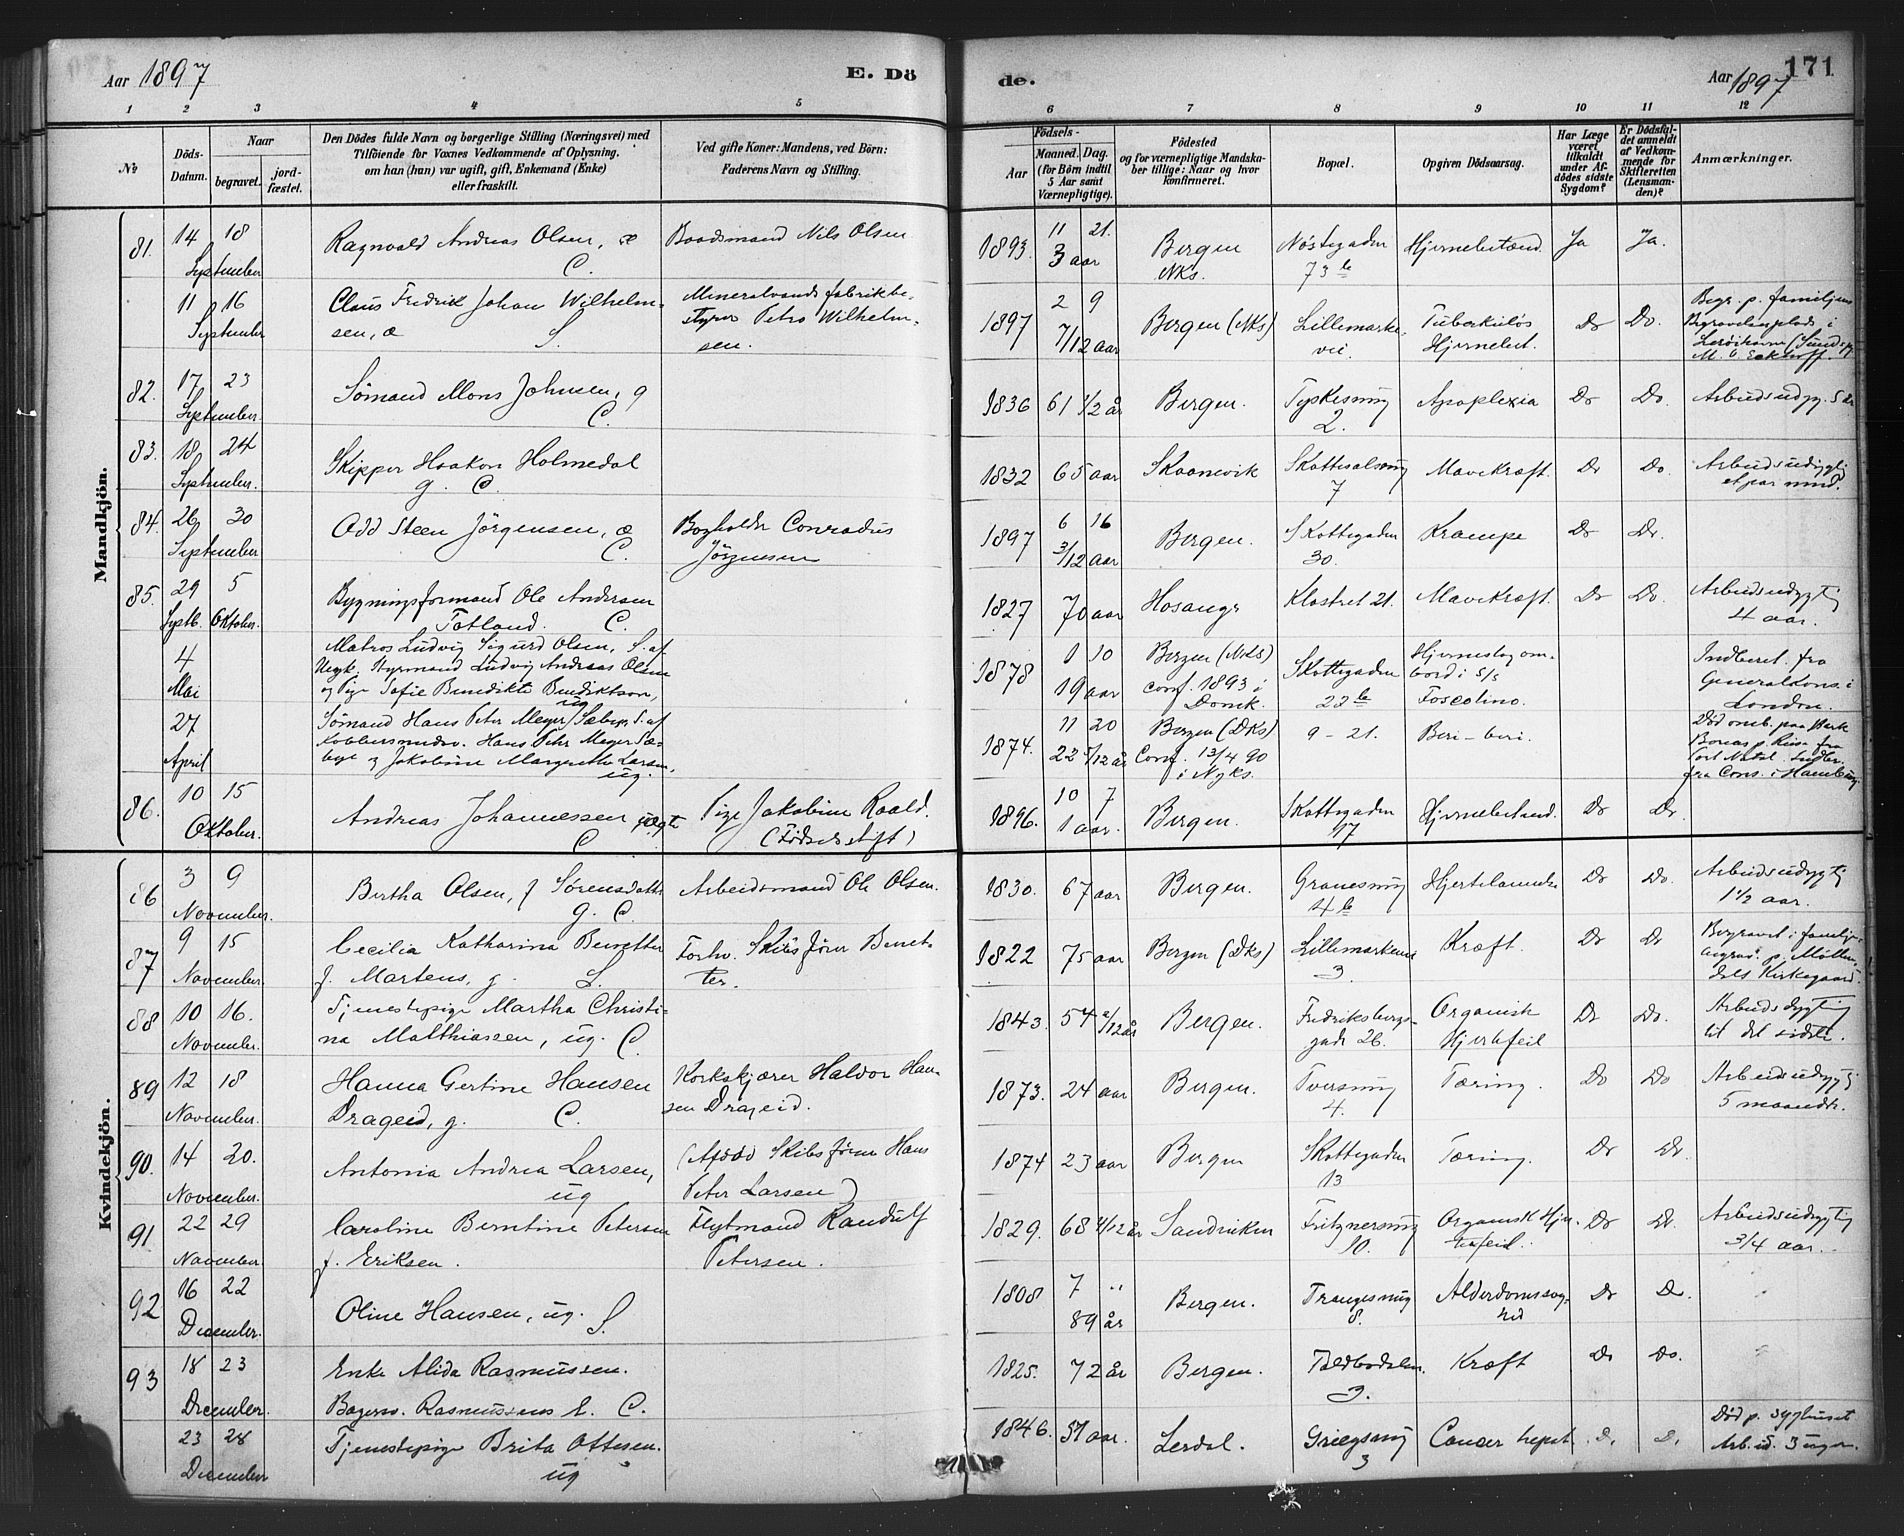 Aar 1897
E. Dö
de.
Aar 1897
171
1 2 3 4 5 6 7 8 9 10 11 12
No
Döds-Datum.
Naar
begravet.
jord-fæstet.
Den Dödes fulde Navn og borgerlige Stilling (Næringsvei) med
Tilföiende for Voxnes Vedkommende af Oplysning,
om han (han) var ugift, gift, Enkemand (Enke)
eller fraskilt.
Ved gifte Koner: Mandens, ved Börn:
Faderens Navn og Stilling.
Födsels-
Aar
Maaned. Dag.
(for Börn indtil
5 Aar samt
Værnepligtige).
Födested
og for værnepligtige Mandska-
ber tillige: Naar og hvor
konfirmeret.
Bopæl.
Opgiven Dödsaarsag.
Har Læge
været
tilkaldt
under Af-
dödes sidste
Sygdom?
Er Dödsfal-
det anmeldt
af Vedkom-
mende for
Skifteretten
(Lensman-
den)?
Anmærkninger.
Mandkjön.
81. 14 18 September Ragnvald Andreas Olsen, æ C. Baadsmand Nils Olsen 1893. 11 21. 3 aar Bergen NKs. Nöstegaden 73 b Hjernebetænd. Ja Ja.
11 16 September Claus Fredrik Johan Wilhelm-
sen, æ S. Mineralvandsfabrikbe-
styrer Petro Wilhelm-
sen. 1897 2 9 7/12 aar Bergen (NKs) Lillemarke-
vei. Tuberkulös
Hjernebet. Do Do. Begr. p. familiens
Begravelsesplads i
82. 17 23 September. Sömand Mons Johnsen, g C. 1836 61 1/2 år Bergen. Tyskesmug 2. Apoplexia Do Do. Arbeidsudyg. 5 år
83. 18 24 September. Skipper Haakon Holmedal g. C. 1832 65 aar Skaanevik Skottesalsmug 7 Mavekræft. Do Do Arbeidsudygtig
et par mnd.
84. 26 30 September Odd Steen Jörgensen, æ C. Bogholder Conradus
Jörgensen 1897 6 16 3/12 aar Bergen. Skottegaden 30. Krampe Do Do.
85. 29 5 Septb. Oktober. Bygningsformand Ole Andersen
Totland. C. 1827 70 aar Hosanger Klostret 21. Mavekræft. Do Do. Arbeidsudygtig
4 aar.
4 Mai Matros Ludvig Sigurd Olsen, S. af
Styrmand Ludvig Andreas Olsen
og Pige Sofie Benedikte Bendiktson,
ug 1878 1 10 19 aar Bergen (NKs)
conf. 1893 i
Domk. Skottegaden
22 b Hjerneslag om-
bord i S/S
Foscolino. Indberet. fra
Generalkons. i
London.
27 April Sömand Hans Peter Meyer Sæbye, S. af
Kobbersmedsv. Hans Peter Meyer Sæ-
bye og Jakobine Margrethe Larsen,
ug. 1874. 11 20 22 5/12 år Bergen (DKs)
Conf. 13/4 90
i Nyks. 9 - 21. Beri-beri. Död omb. paa Bark
Boreas p. Reise fra
Port Natal. Indber.
fra Cons. i Hamburg.
86. 10 15 Oktober. Andreas Johannessen uægte C Pige Jakobine Roald.
(Födselsstift) 1896. 10 7 1 aar. Bergen. Skottegaden 17 Hjernebetænd. Do Do.
Kvindekjön.
86 3 9 November. Bertha Olsen, f Sörensdatter
g. C. Arbeidsmand Ole Olsen. 1830. 67 aar Bergen. Granesmug 4 b Hjertelammelse Do Do. Arbeidsudygtig
1 1/2 aar.
87 9 15 November. Cecilia Katharina Benetter
f. Martens, g. S. Forhv. Skibsförer Benet-
ter. 1822 75 aar Bergen (Dks) Lillemarkene 3. Kræft. Do Do Begravet i familie-
begrav. p. Möllen-
dals Kirkegaard.
88 10 16. November. Tjenestepige Martha Christi-
na Matthiassen, ug. C. 1843. 54 2/12 år Bergen. Fredriksbergs-
gade 26. Organisk
Hjertefeil Do Do. Arbeidsdygtig
til det sidste.
89 12 18 November. Hanna Gertine Hansen
Drageid, g. C. Korkskjærer Haldor Han-
sen Drageid. 1873. 24 aar Bergen. Tversmug 4. Tæring. Do Do Arbeidsudygtig
5 maaneder.
90. 14 20. November. Antonia Andrea Larsen,
ug (Afdöd Skibsförer Hans
Peter Larsen) 1874 23 aar Bergen Skottegaden 13 Tæring. Do Do.
91 22 29 November. Caroline Berntine Petersen
f. Eriksen. Flytmand Randulf
Petersen. 1829. 68 2/12 år Sandviken Fritznersmug 10. Organisk Hjer-
tefeil. Do Do. Arbeidsudygtig
3/4 aar.
92 16 22 December. Oline Hansen, ug. S. 1808 7 " 89 år Bergen. Trangesmug 8. Alderdomssvag-
hed Do Do.
93 18 23 December. Enke Alida Rasmussen.
Bagersv. Rasmussens E. C. 1825. 72 år Bergen. Toldbodalm. 3. Kræft Do Do.
23 28 December Tjenestepige Brita Ottesen.
ug 1846. 51 aar. Lerdal. Griegsmug 3 Cancer hepat. Do Do. Död p. Syghuset
Arb. ud. 3 uger.